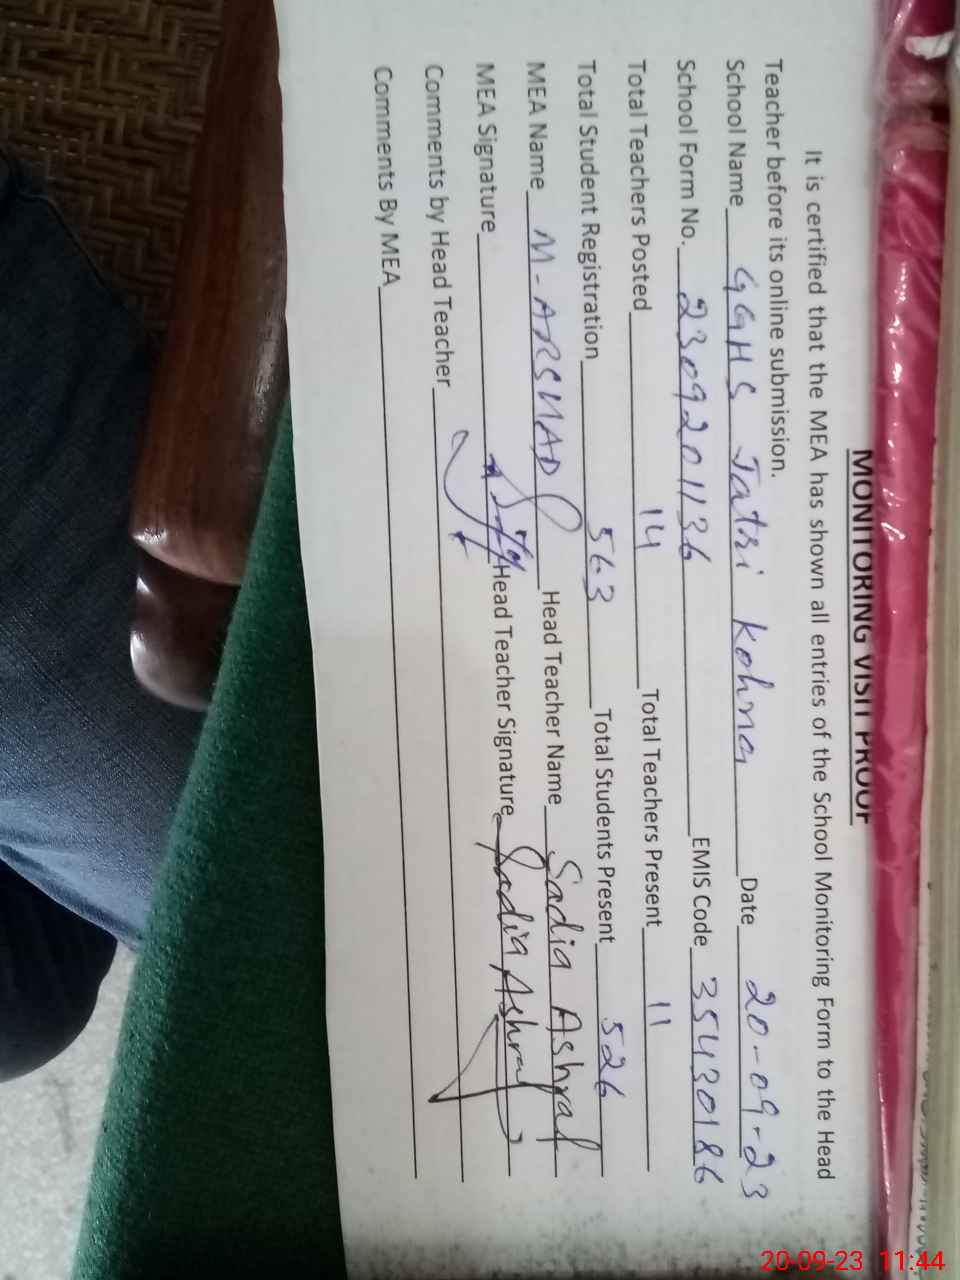 MONITORING VISIT PROOF
It is certified that the MEA has shown all entries of the School Monitoring Form to the Head
Teacher before its online submission.
School Name GGHS Jatri Kohna Date 20-09-23
School Form No. 2309201136 EMIS Code 35430186
Total Teachers Posted 14 Total Teachers Present 11
Total Student Registration 563 Total Students Present 526
MEA Name M-ARSHAD Head Teacher Name Sadia Ashraf
MEA Signature Head Teacher Signature Sadia Ashraf
Comments by Head Teacher
Comments By MEA
20-09-23 11:44